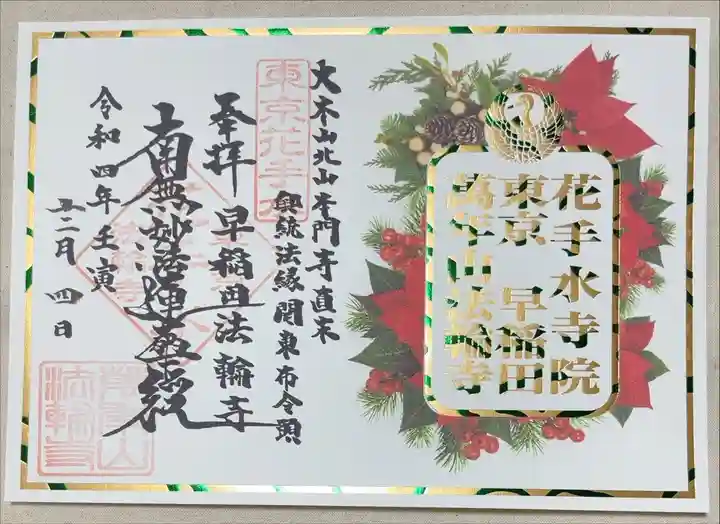 花手水寺院
東京 早稲田
萬年山法輪寺
大本山北山本門寺直末
興統法縁関東布令頭
東京花手水
奉拝 早稲田法輪寺
南無妙法蓮華経
令和四年壬寅
十二月四日